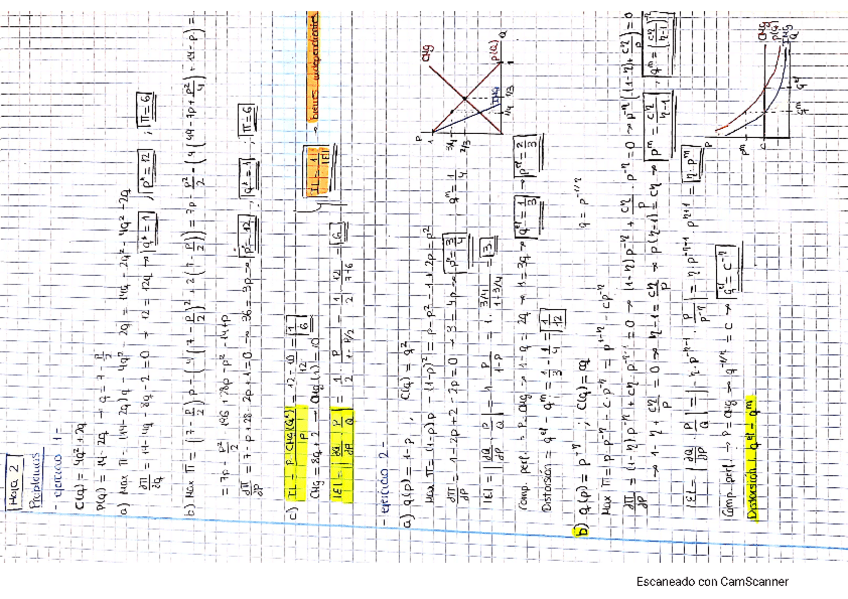 Hoja 2
Problemas
- ejercicio 1 -
C(q) = 4q² + 2q
P(q) = 14 - 2q → q = 7 - P/2
a) Max π = (14 - 2q) q - 4q² - 2q = 14q - 2q² - 4q² - 2q
dπ/dq = 14 - 4q - 8q - 2 = 0 → 12 = 12q → q* = 1 ; p* = 12 ; π = 6
b) Max π = (7 - P/2) p - (4 (7 - P/2)² + 2 (7 - P/2)) = 7p - p²/2 - (4 (49 - 7p + p²/4) + 14 - p) =
= 7p - p²/2 - 196 + 28p - p² - 14 + p
dπ/dp = 7 - p + 28 - 2p + 1 = 0 → 36 = 3p → p* = 12 ; q* = 1 ; π = 6
c) IL = P - CHg(Q*) / P = 12 - 10 / 12 = 1/6
CHg = 8q + 2 → CHg(1) = 10
IL = 1/|E| → bienes independientes
|E| = |dQ/dP · P/Q| = 1/2 · P/7 - P/2 = 1/2 · 12/7 - 6 = 6
- ejercicio 2 -
a) q(p) = 1 - p ; C(q) = q²
Max π = (1 - p) p - (1 - p)² = p - p² - 1 + 2p - p²
dπ/dp = 1 - 2p + 2 - 2p = 0 → 3 = 4p → p^m = 3/4 ; q^m = 1/4
|E| = |dQ/dP · P/Q| = 1 · P/1 - P = 1 · 3/4 / 1 - 3/4 = 3
Comp. perf. → P = CHg → 1 - q = 2q → 1 = 3q → q^ef = 1/3 → p^ef = 2/3
Distorsión = q^ef - q^m = 1/3 - 1/4 = 1/12
P
CHg
3/4
2/3
P(Q)
IHg
1/4
1/3
1
Q
b) q(p) = p^-η ; C(q) = cq
q = p^-η
Max π = p p^-η - c p^-η = p^1-η - c p^-η
dπ/dp = (1 - η) p^-η + cη p^-η-1 = 0 → (1 - η) p^-η + cη/p p^-η = 0 → p^-η ((1 - η) + cη/p) = 0
→ 1 - η + cη/p = 0 → η - 1 = cη/p → p(η - 1) = cη → p^m = cη/η - 1 ; q^m = (cη/η - 1)^-η
|E| = |dQ/dP · P/Q| = |-η p^-η-1 · P/p^-η|
Comp. perf. → P = CHg → q^-1/η = c → q^ef = c^-η
Distorsión = q^ef - q^m
P
p^m
c
q^m
q^ef
CHg
P(q)
IHg
Q
Escaneado con CamScanner